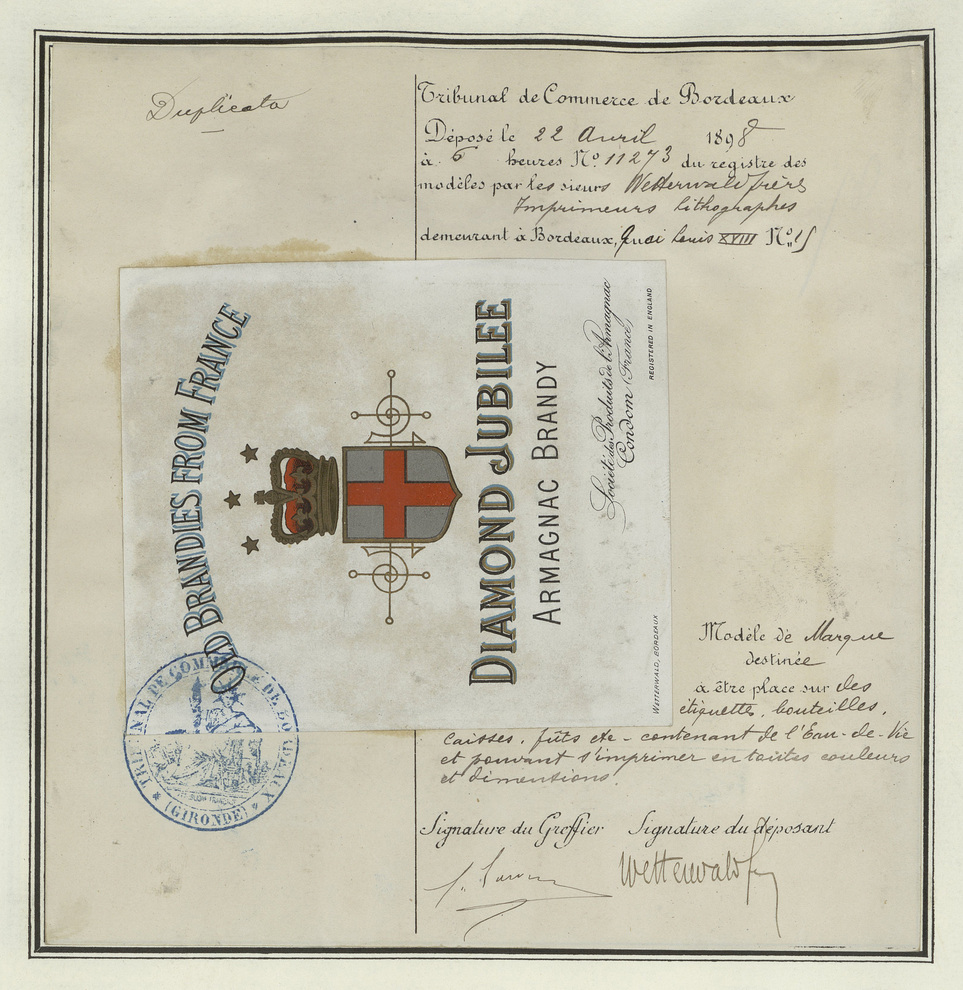 Duplicata
Tribunal de Commerce de Bordeaux
Déposé le 22 Avril 1898
à 6 heures N° 11273 du registre des
modèles par les sieurs Wetterwald frères
Imprimeurs lithographes
demeurant à Bordeaux, Quai Louis XVIII N° 15
OLD BRANDIES FROM FRANCE
DIAMOND JUBILEE
ARMAGNAC BRANDY
Société des Produits de l'Armagnac
Condom (France)
REGISTERED IN ENGLAND
WETTERWALD, BORDEAUX
Modèle de Marque
destinée
à être place sur des
étiquette, bouteilles,
caisses, fûts etc - contenant de l'Eau-de-Vie
et pouvant s'imprimer en toutes couleurs
et dimentions
TRIBUNAL DE COMMERCE DE BORDEAUX
(GIRONDE)
Signature du Greffier Signature du déposant
Wetterwald